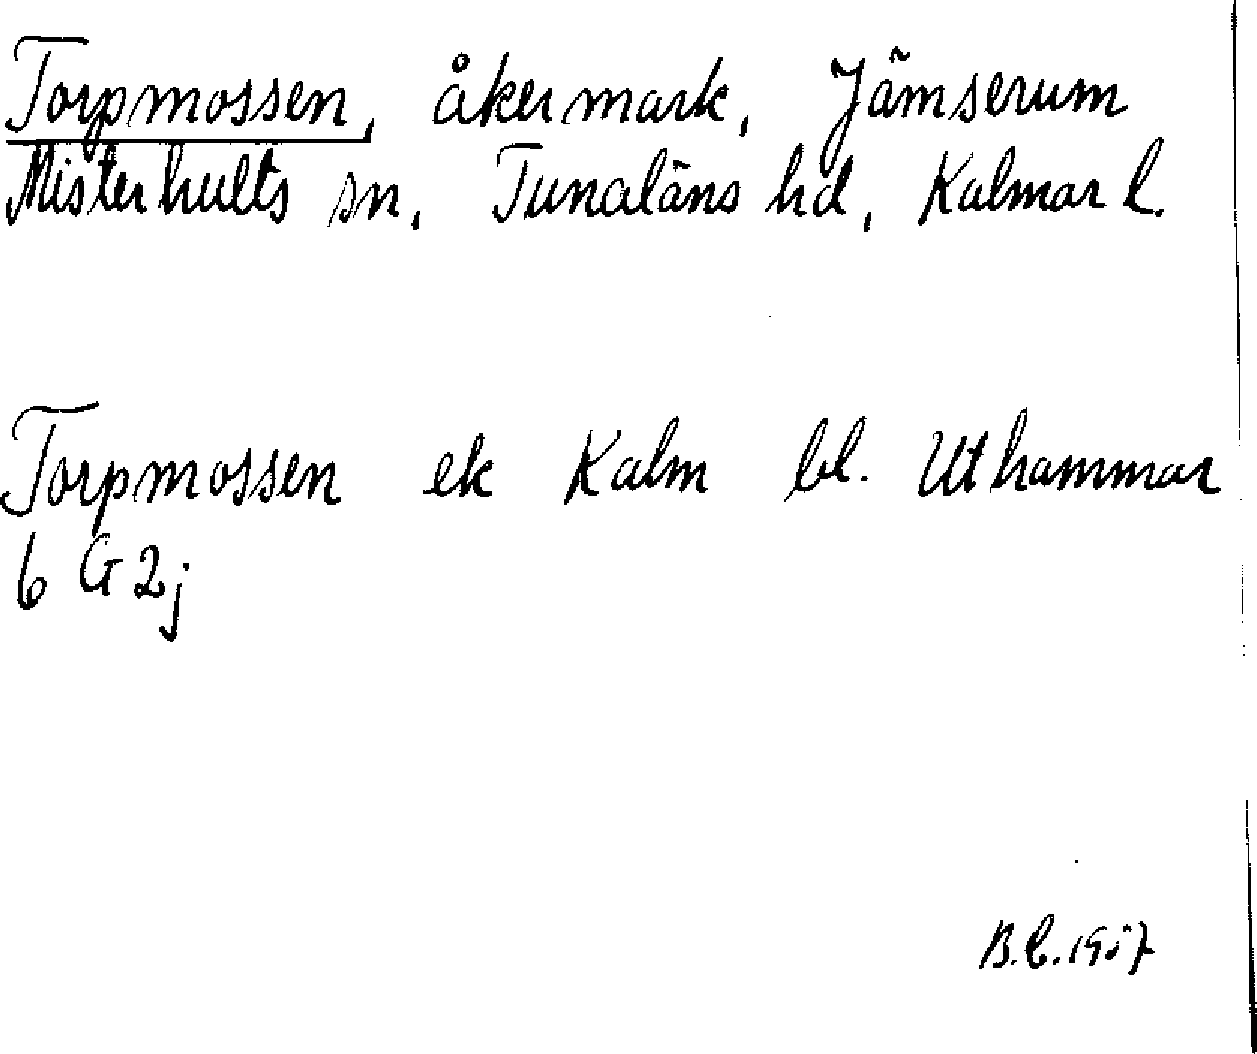 Torpmossen, åkermark, Jämserum
Misterhults sn, Tunaläns hd, Kalmar l.
Torpmossen ek Kalm bl. Uthammar
6 G 2j
B.C. 1957